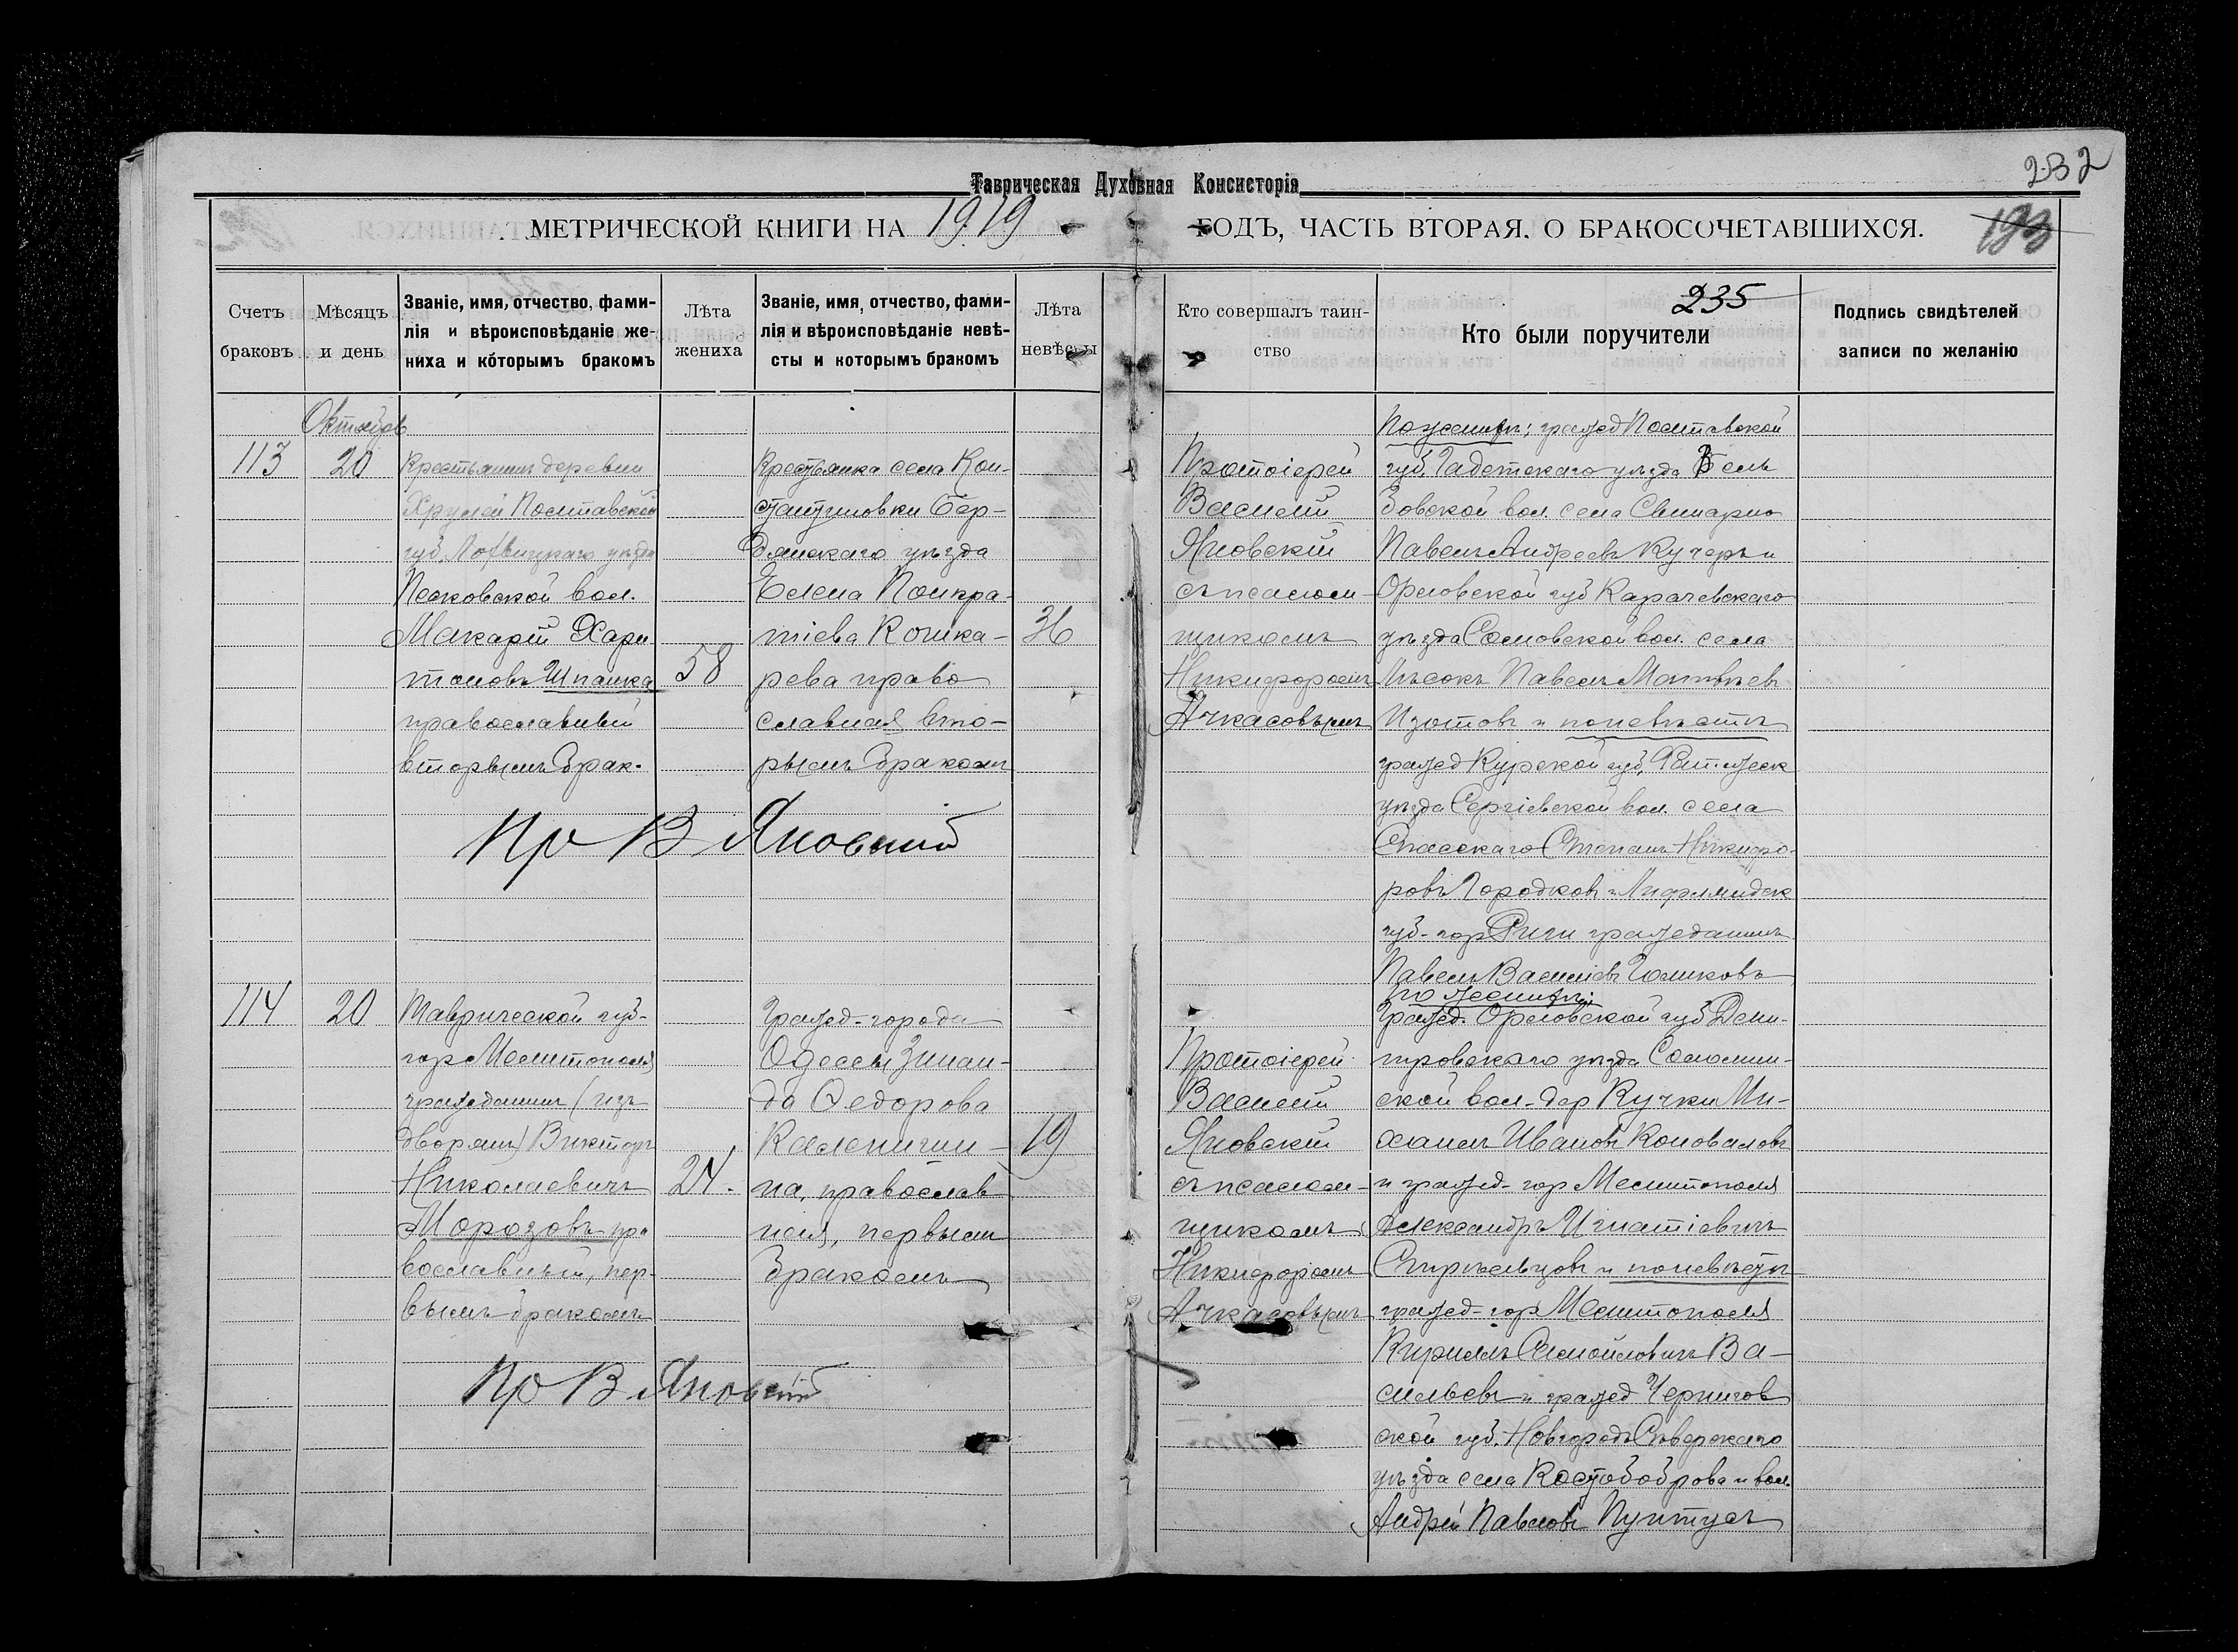 232
Таврическая Духовная Консисторія
МЕТРИЧЕСКОЙ КНИГИ НА 1919 ГОДЪ, ЧАСТЬ ВТОРАЯ, О БРАКОСОЧЕТАВШИХСЯ.
193
Счетъ браковъ
Мѣсяцъ и день
Званіе, имя, отчество, фами-
лія и вѣроисповѣданіе же-
ниха и которымъ бракомъ
Лѣта жениха
Званіе, имя, отчество, фами-
лія и вѣроисповѣданіе невѣ-
сты и которымъ бракомъ
Лѣта невѣсты
Кто совершалъ таин-
ство
235
Кто были поручители
Подпись свидѣтелей
записи по желанію
Октябрь
113
20
Крестьянинъ деревни
Хрулей Полтавской
губ. Лохвицкаго уѣзда
Песковской вол.
Макарій Хари
тоновъ Шпанка
православный
вторымъ брак.
58
Крестьянка села Кон-
стантиновки Бер-
дянскаго уѣзда
Елена Понкра-
тіева Кошка-
рева право
славная вто-
рымъ бракомъ
36
Протоіерей
Василій
Яновскій
съ псалом-
щикомъ
Никифоромъ
Ачкасовымъ
По женихѣ; гражд Полтавской
губ. Гадячскаго уѣзда Бель
бовской вол. села Свинарно
Павелъ Андреевъ Кучеръ и
Орловской губ Карачевскаго
уѣзда Самовской вол. села
Мѣсокъ Павелъ Матвѣевъ
Изотовъ и по невѣстѣ
гражд Курской губ,
уѣзда Сергіевской вол. села
Спасскаго Степанъ Никифо-
ровъ Городковъ и Лифляндск
губ-гор Риги гражданинъ
Павелъ Василіевъ Голиковъ
Пр В Яновскій
114
20
Таврической губ-
гор Мелитополя
гражданинъ (изъ
дворянъ) Викторъ
Николаевичъ
Морозовъ пра
вославный, пер-
вымъ бракомъ
24.
Гражд-города
Одессы Зинаи-
да Ѳедорова
Каленични-
на, православ
ная, первымъ
бракомъ
19
Протоіерей
Василій
Яновскій
съ псалом-
щикомъ
Никифоромъ
Ачкасовымъ
по женихѣ:
Гражд. Орловской губ Дми-
тровскаго уѣзда Соломин-
ской вол-дер Кучки Ми-
хаилъ Ивановъ Коноваловъ
и гражд-гор Мелитополя
Александръ Игнатіевичъ
Стрѣльцовъ и по невѣстѣ
гражд-гор Мелитополя
Кириллъ Самойловичъ Ва-
сильевъ и гражд Чернигов
ской губ. Новгородъ Сѣверскаго
уѣзда села Костобоброва и вол.
Андрей Павловъ Пунтусъ
Пр В Яновскій